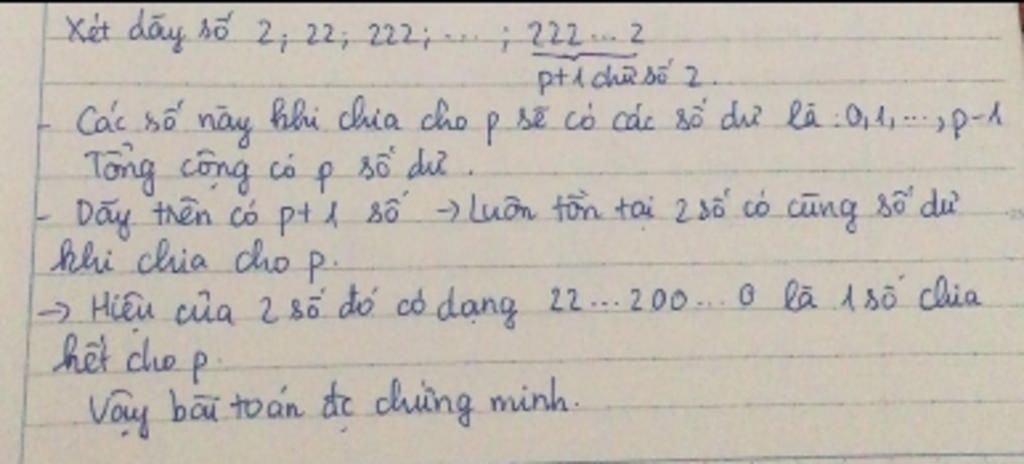 Xét dãy số 2; 22; 222; ... ; 222...2
p+1 chữ số 2.
- Các số này khi chia cho p sẽ có các số dư là: 0,1,...,p-1
Tổng cộng có p số dư.
- Dãy trên có p+1 số → Luôn tồn tại 2 số có cùng số dư
khi chia cho p.
→ Hiệu của 2 số đó có dạng 22...200...0 là 1 số chia
hết cho p.
Vậy bài toán đc chứng minh.